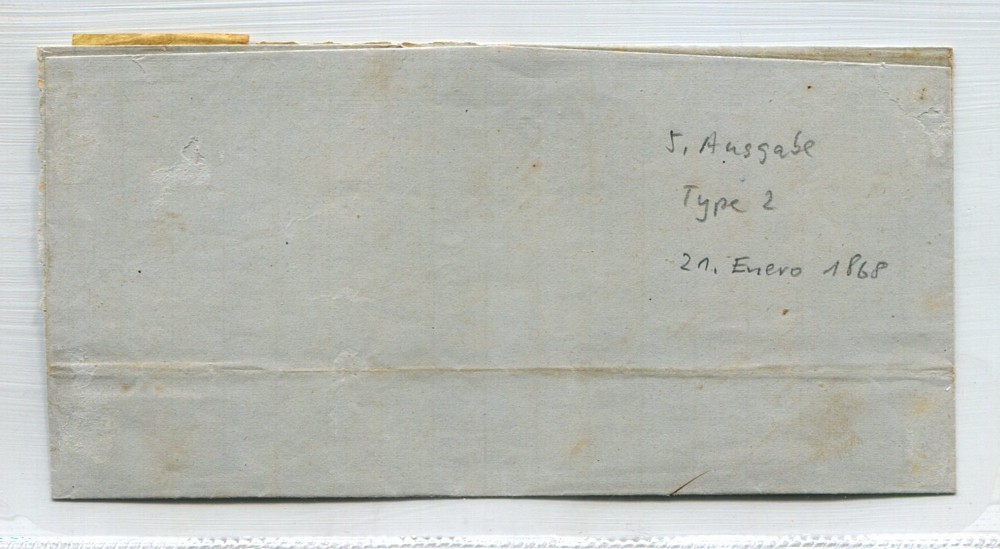 5. Ausgabe
Type 2
21. Enero 1868